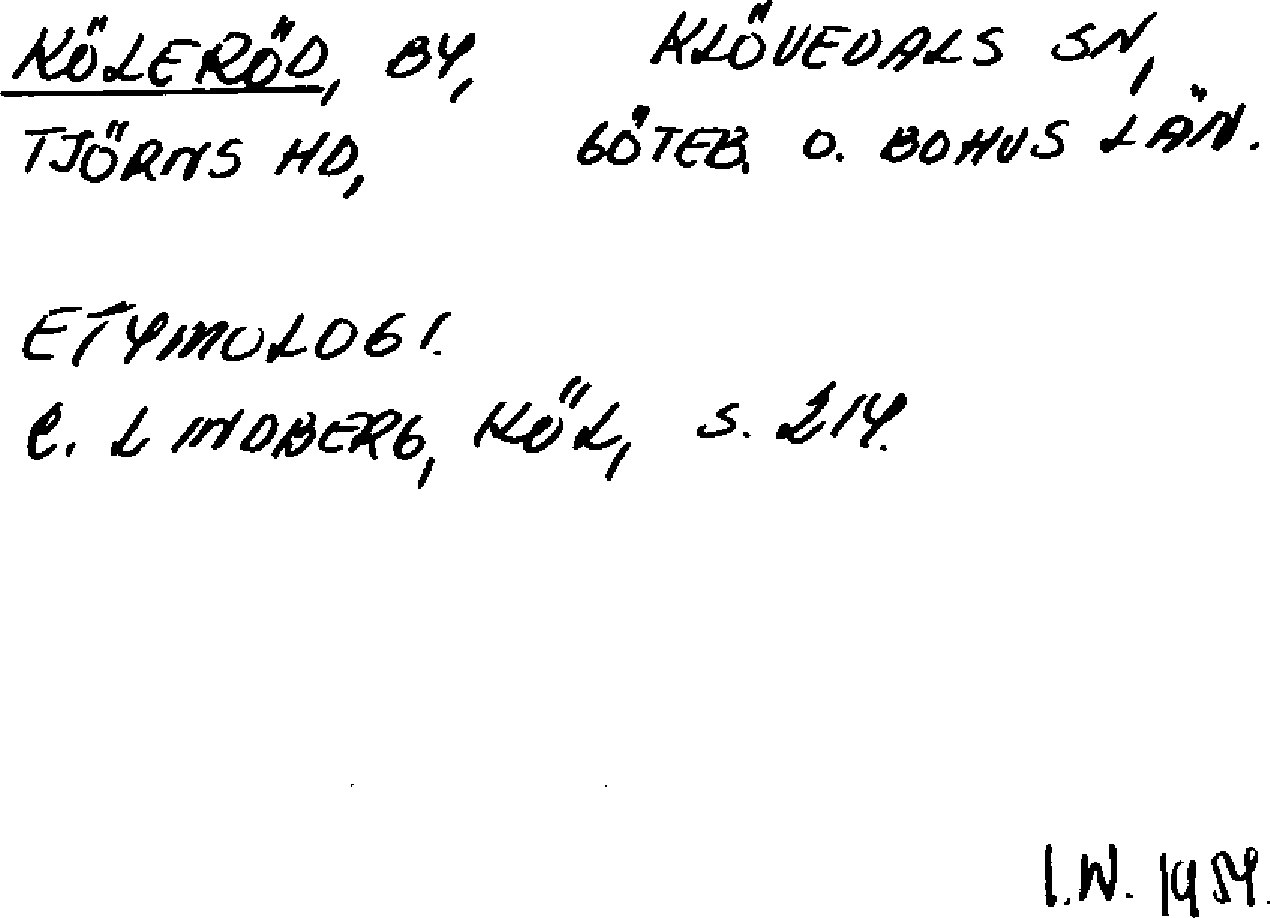 KÖLERÖD, BY, KLÖVEDALS SN,
TJÖRNS HD, GÖTEB. O. BOHUS LÄN.
ETYMOLOGI.
C. LINDBERG, KÖL, S. 214.
I.W. 1954.